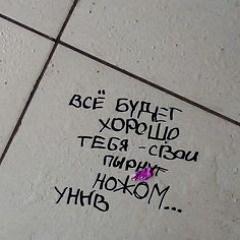 ВСЁ БУДЕТ
ХОРОШО
ТЕБЯ - СВОИ
ПЫРНУТ
НОЖОМ...
УННВ